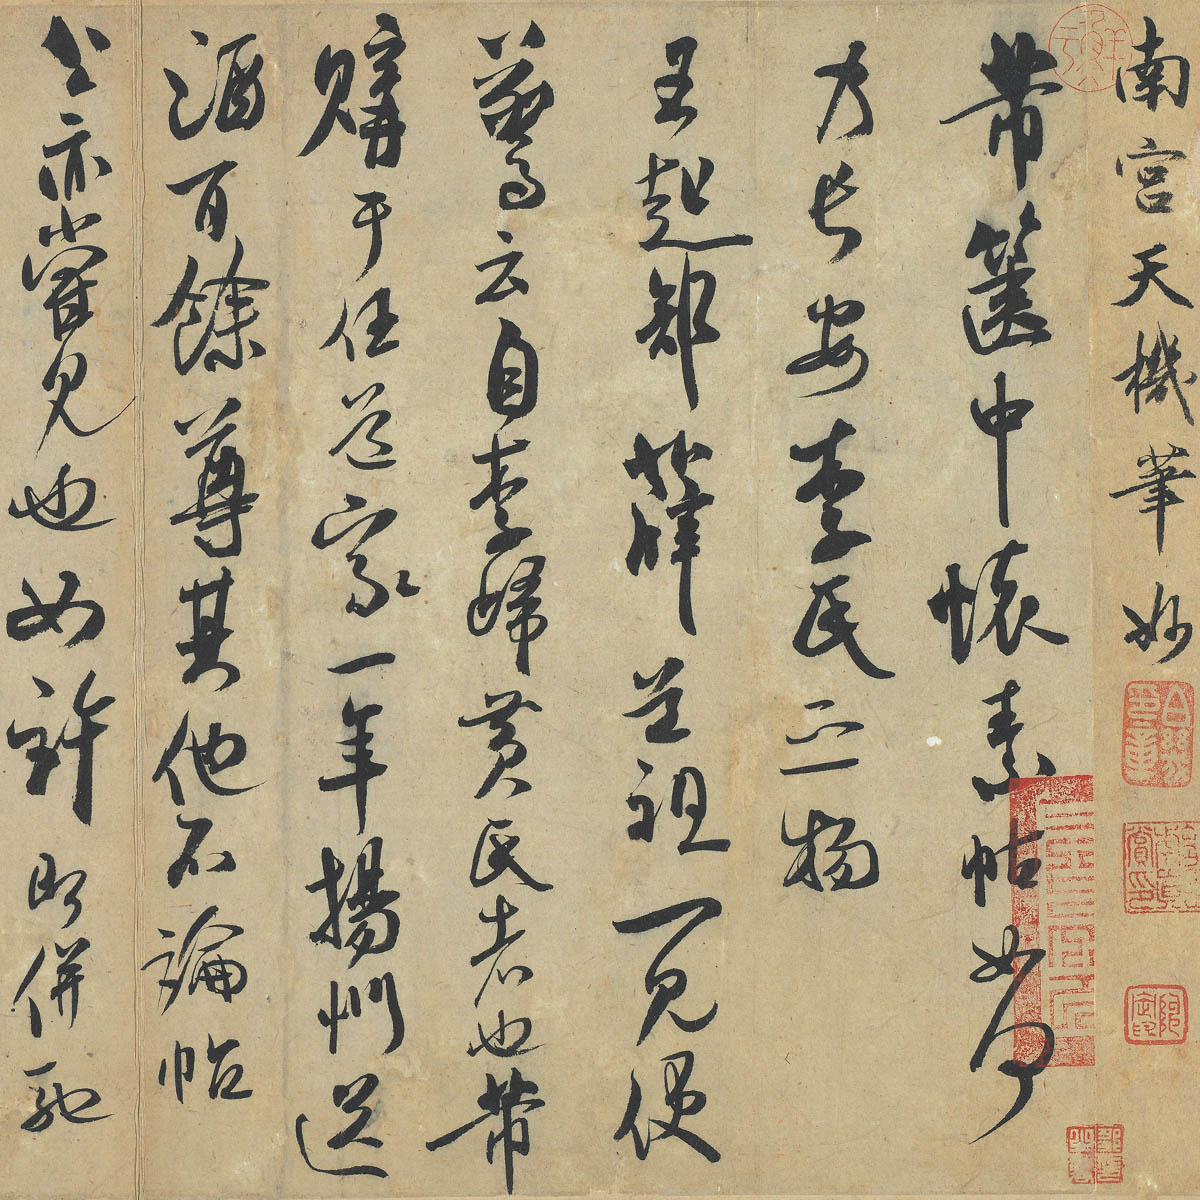 南宮天機筆妙
芾篋中懷素帖如何
乃長安李氏之物
王起部薛道祖一見便
驚云自李歸黃氏者也芾
購于任道家一年揚州送
酒百餘尊其他不論帖
公亦嘗見也如許即併馳